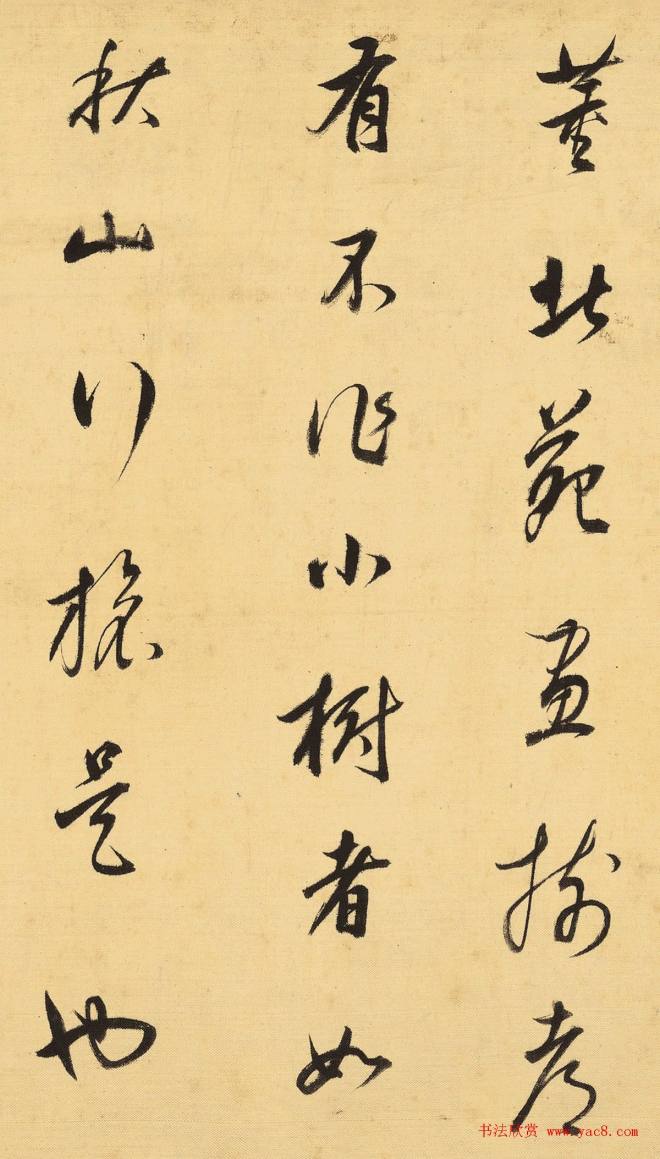 董北苑畫樹都
有不作小樹者如
秋山行旅是也
书法欣赏 www.yac8.com